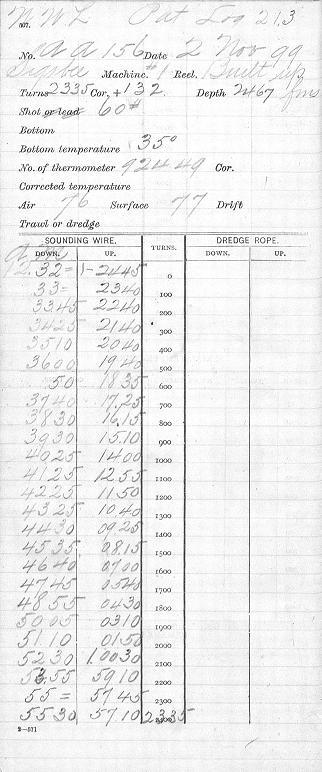 N. W L Pat Log 21.3
No. a a 156 Date 2 Nov 99
Sigsbee Machine. #1 Reel. Built up
Turns 2335 Cor, +132 Depth 2467 fms
Shot or lead 60#
Bottom
Bottom temperature 35°
No. of thermometer 92449 Cor.
Corrected temperature
Air 76 Surface 77 Drift
Trawl or dredge
SOUNDING WIRE. TURNS. DREDGE ROPE.
DOWN. UP. DOWN. UP.
a.m.
12.32= 1-2445 0
33= 2340 100
33.45 2240 200
3425 2140 300
3510 2040 400
3600 1940 500
50 1835 600
3740 17.25 700
3830 16.15 800
3930 15.10 900
4025 1400 1000
4125 1255 1100
4225 1150 1200
4325 10.40 1300
4430 0925 1400
4535 08.15 1500
4640 0700 1600
4745 0540 1700
4855 0430 1800
5005 0310 1900
5110 0150 2000
5230 1.0030 2100
53.55 5910 2200
55= 5745 2300
5530 5710 2335
2—571